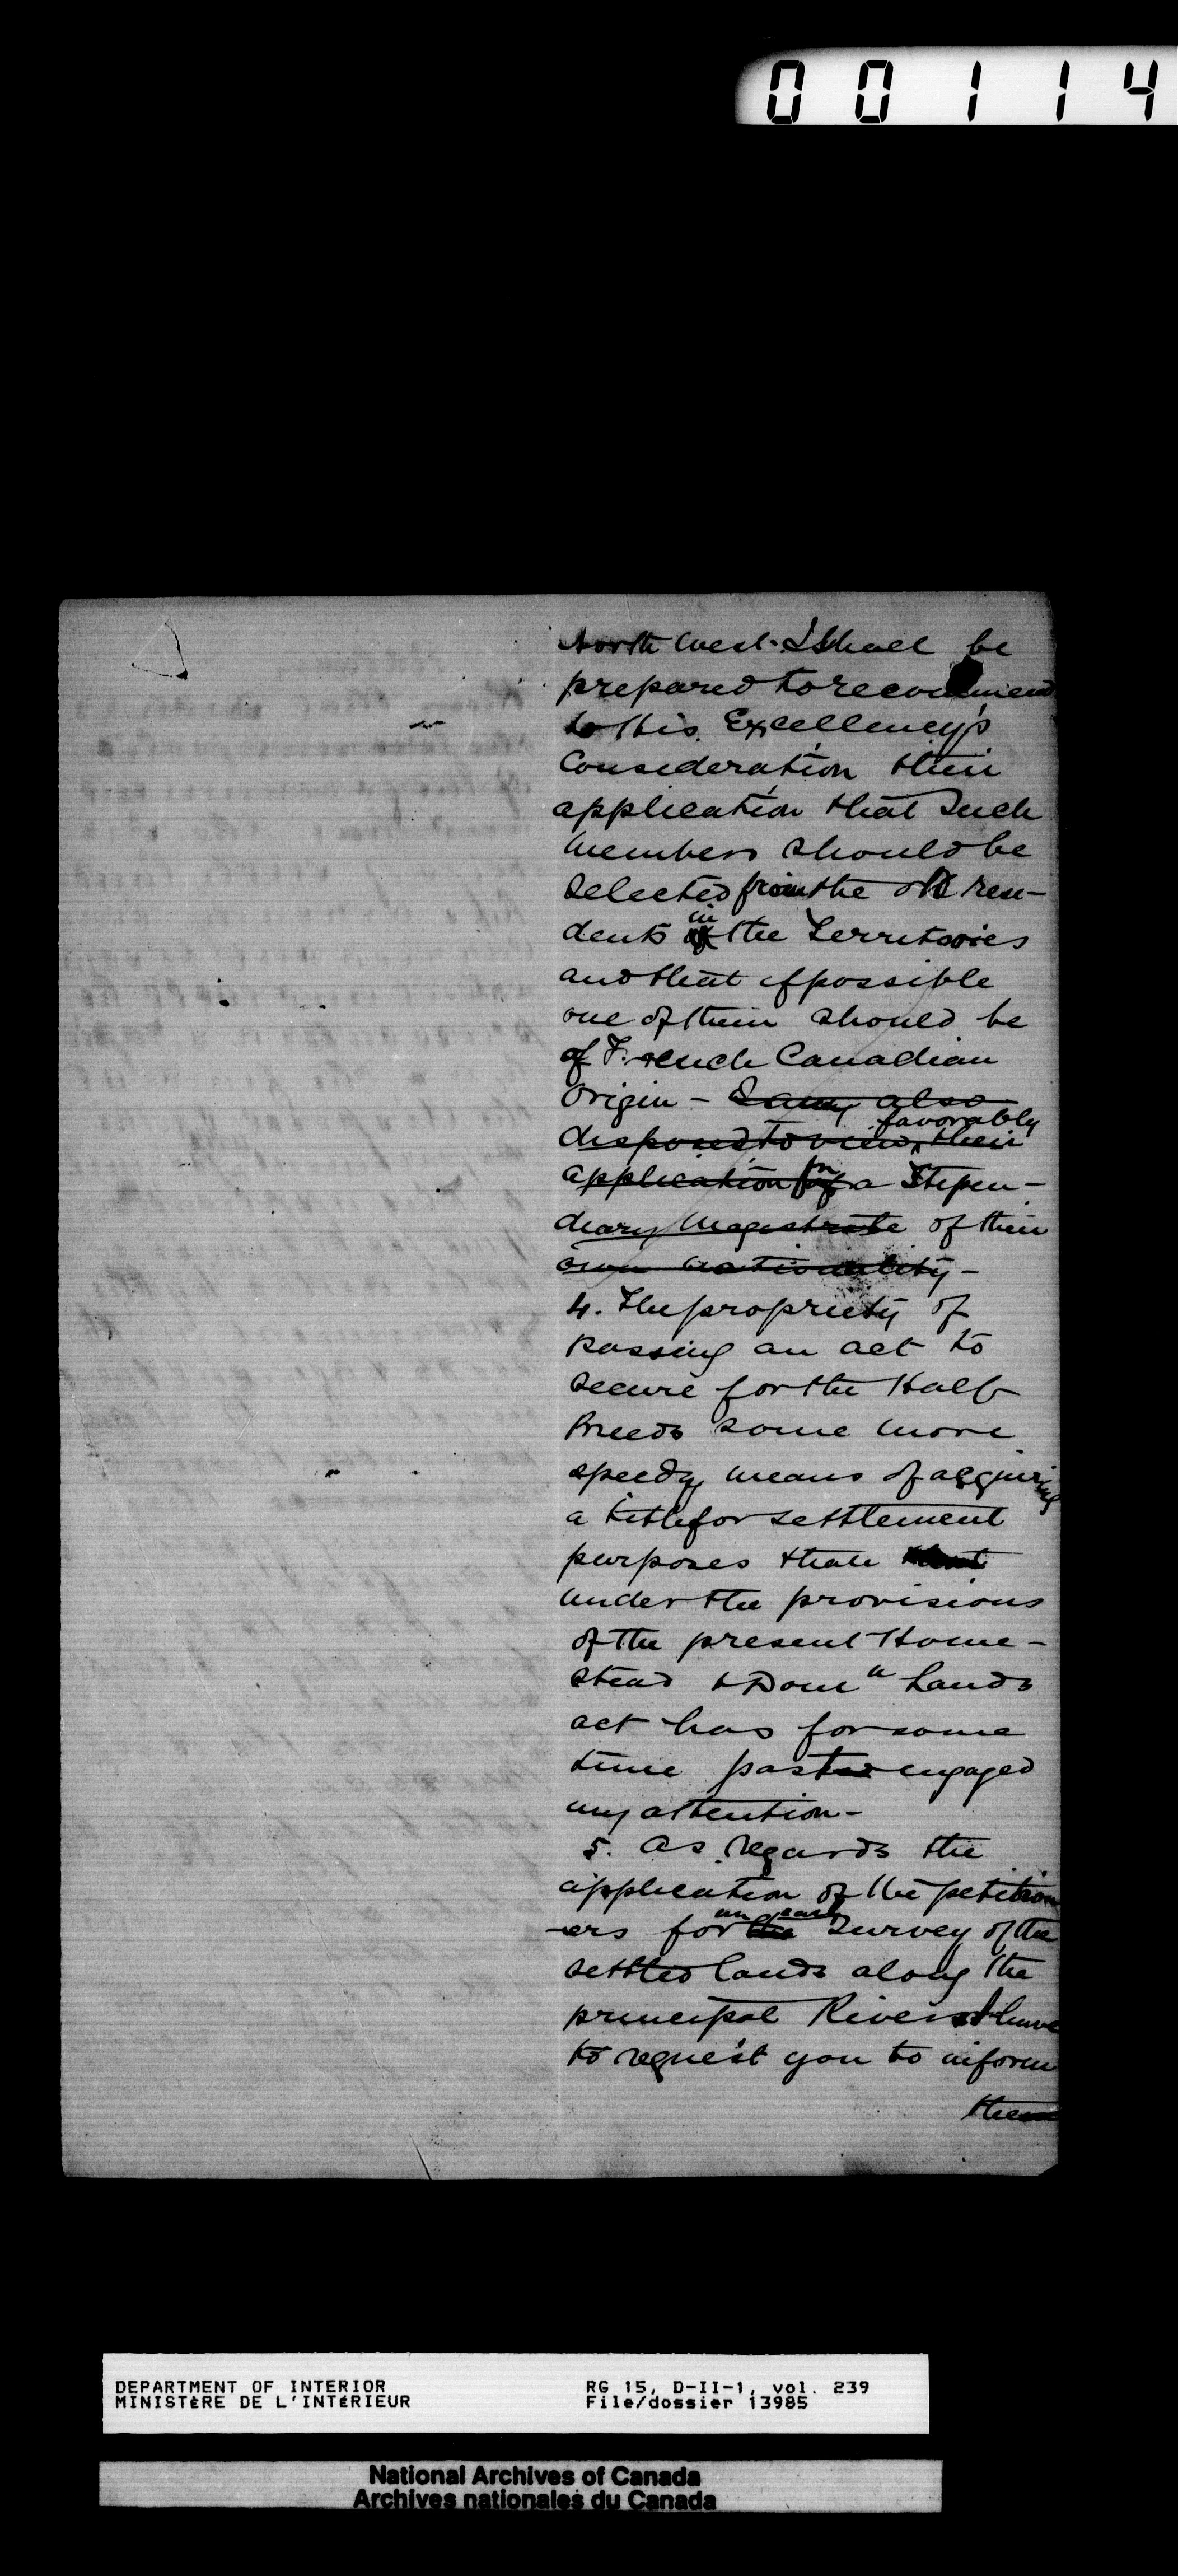 00114
North West. I Shall be
prepared to recommend
to His Excellency's
Consideration their
application that Such
members should be
Selected from the old resi-
in
dents of the Territories
and that if possible
one of them should be
of French Canadian
Origin - I am also
favorably
disposed to view their
for
application for a Stipen-
diary Magistrate of their
own nationality -
4. The propriety of
passing an act to
secure for the Half
Breeds some more
speedy means of acquiring
a title for settlement
purposes than that
under the provisions
of the present Home-
stead & Domn Lands
act has for some
time past engaged
my attention -
5. As regards the
application of the petition
an early
-ers for the Survey of the
settled lands along the
principal Rivers I have
to request you to inform
them
DEPARTMENT OF INTERIOR RG 15, D-II-1, vol. 239
MINISTÈRE DE L'INTÉRIEUR File/dossier 13985
National Archives of Canada
Archives nationales du Canada